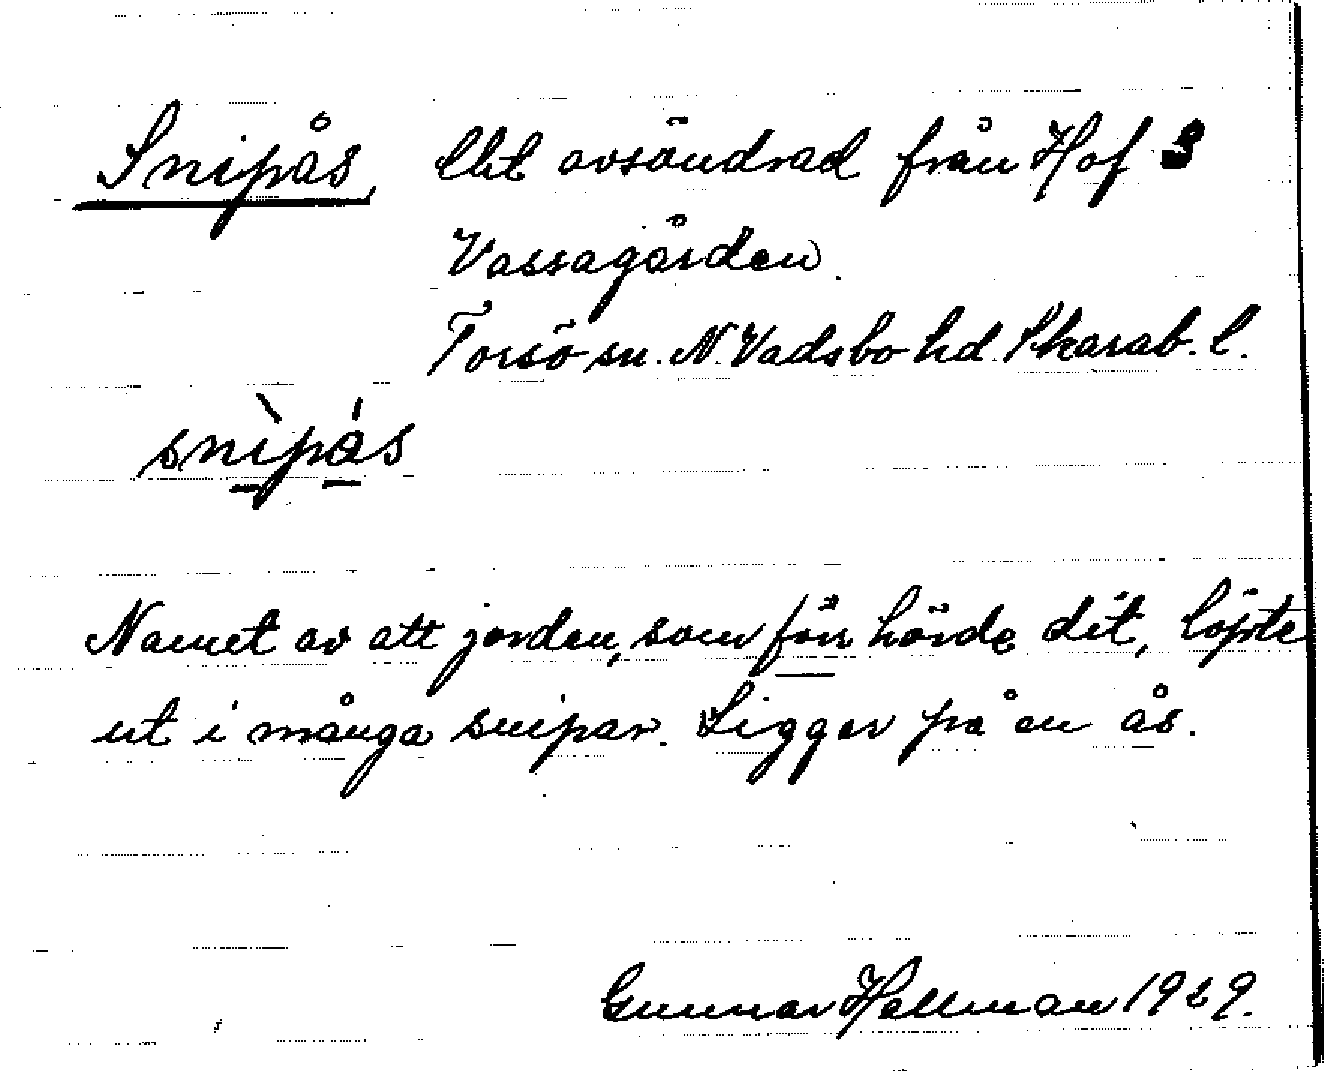 Snipås, lht avsöndrad från Hof 3
Vassagården.
Torsö sn. N. Vadsbo hd. Skarab. l.
snìpás
Namnet av att jorden, som förr hörde dit, löpte
ut i många snipar. Ligger på en ås.
Gunnar Hallman 1929.